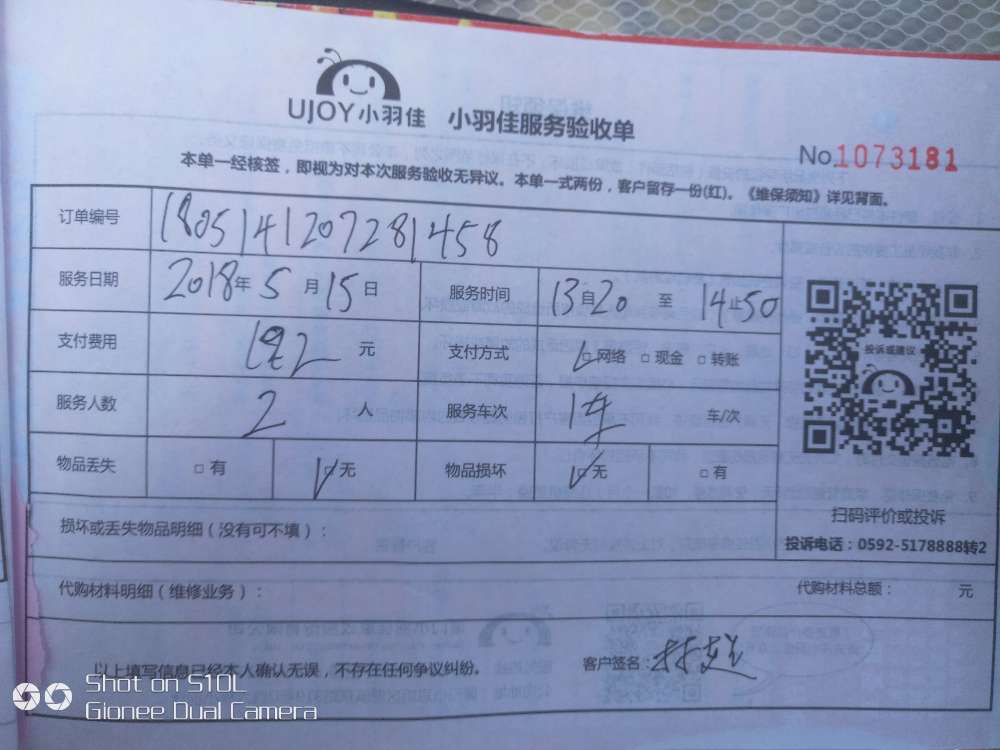 UJOY小羽佳 小羽佳服务验收单
No.1073181
本单一经核签，即视为对本次服务验收无异议。本单一式两份，客户留存一份(红)。《维保须知》详见背面。
订单编号 1805141207281458
服务日期 2018年5月15日 服务时间 13自20至14止50
支付费用 元 支付方式 网络 现金 转账
服务人数 2人 服务车次 1车 车/次
物品丢失 有 无 物品损坏 无 有
投诉或建议
扫码评价或投诉
投诉电话：0592-5178888转2
损坏或丢失物品明细（没有可不填）：
代购材料明细（维修业务）： 代购材料总额： 元
以上填写信息已经本人确认无误，不存在任何争议纠纷。 客户签名：林
Shot on S10L
Gionee Dual Camera